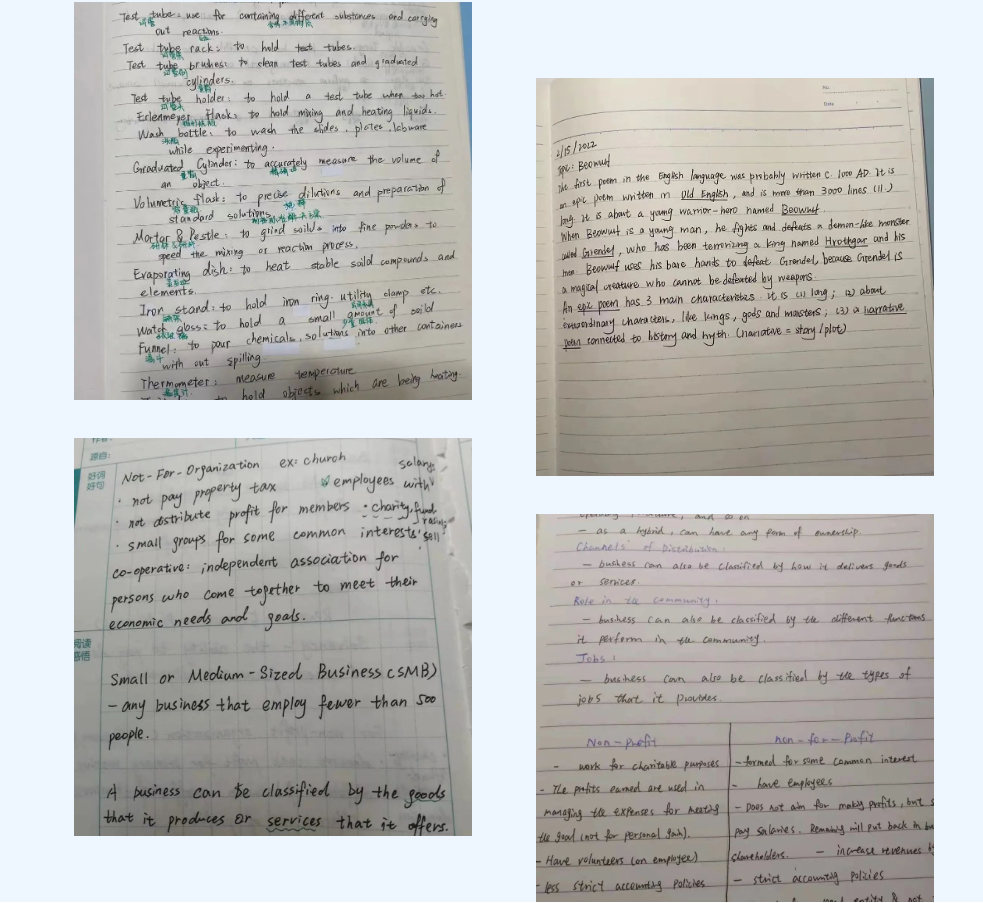 Test tube: use for containing different substances and carrying
试管
out reactions.
Test tube rack: to hold test tubes.
试管架
Test tube brushes: to clean test tubes and graduated
试管刷
cylinders.
量筒
Test tube holder: to hold a test tube when too hot.
试管夹
Erlenmeyer Flask: to hold mixing and heating liquids.
Wash bottle: to wash the slides, plates, labware
洗瓶
while experimenting.
Graduated Cylinder: to accurately measure the volume of
量筒
an object.
Volumetric flask: to precise dilutions and preparation of
容量瓶
standard solutions.
Mortar & Pestle: to grind soilds into fine powders to
speed the mixing or reaction process.
Evaporating dish: to heat stable soild compounds and
elements.
Iron stand: to hold iron ring, utility clamp etc.
Watch glass: to hold a small amount of soild
Funnel: to pour chemicals, solutions into other containers
漏斗
with out spilling
Thermometer: measure temperature
温度计
to hold objects which are being heating.
No.
Date
2/15/2012
Epic: Beowulf
The first poem in the English language was probably written c. 1000 AD. It is
an epic poem written in Old English, and is more than 3000 lines (ll.)
long. It is about a young warrior-hero named Beowulf
When Beowulf is a young man, he fights and defeats a demon-like monster
called Grendel, who has been terrorizing a king named Hrothgar and his
men. Beowulf uses his bare hands to defeat Grendel, because Grendel is
a magical creature who cannot be defeated by weapons.
An epic poem has 3 main characteristics. it is (1) long; (2) about
extraordinary characters, like kings, gods and masters; (3) a narrative
poem connected to history and myth. (narrative = story/plot)
源自:
好词
好句
Not-For-Organization ex: church
salary
· not pay property tax employees with
· not distribute profit for members · charity, fund
· small groups for some common interests sell
co-operative: independent association for
persons who come together to meet their
economic needs and goals.
阅读
感悟
Small or Medium-Sized Business (SMB)
- any business that employ fewer than 500
people.
A business can be classified by the goods
that it produces or services that it offers.
and so on
- as a hybrid, can have any form of ownership.
Channels of Distribution:
- business can also be classified by how it delivers goods
or services.
Role in the community:
- business can also be classified by the different functions
it perform in the community.
Jobs:
- business can also be classified by the types of
jobs that it provides.
Non-Profit
- work for charitable purposes
- The profits earned are used in
managing the expenses for meeting
the goal (not for personal gain).
- Have volunteers (on employee)
- less strict accounting policies
non-for-Profit
- formed for some common interest
- have employees
- Does not aim for making profits, but
pay salaries. Remaining will put back in
shareholders. - increase revenues
- strict accounting policies
entity & not